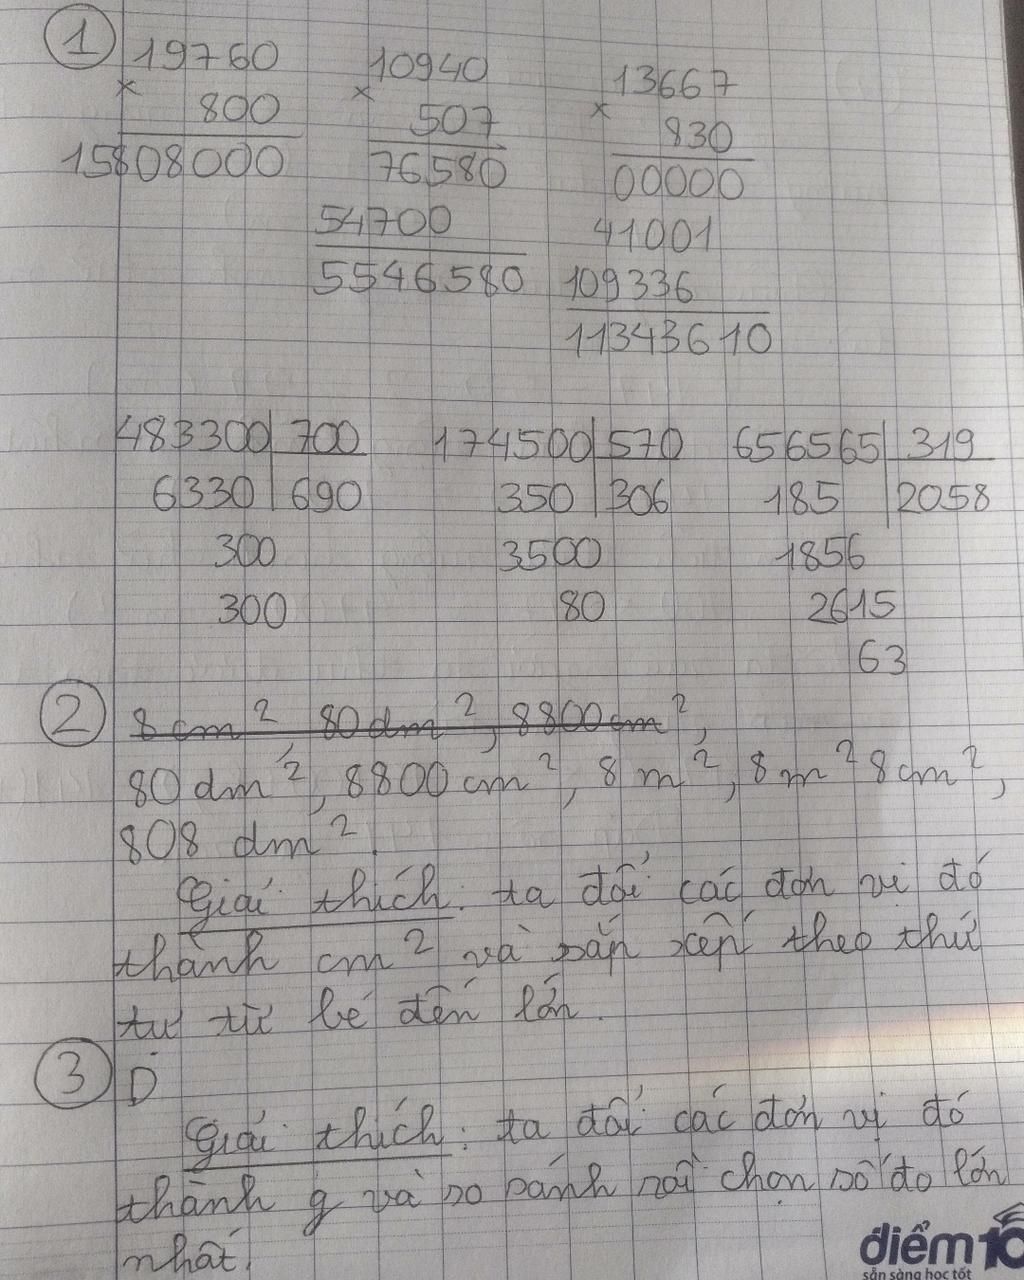 1
19760 10940 13667
× 800 × 507 × 830
15808000 76580 00000
54700 41001
5546580 109336
11343610
483300 700 174500 570 656565 319
6330 690 350 306 185 2058
300 3500 1856
300 80 2615
63
2 8cm² 80dm², 8800cm²,
80dm², 8800cm², 8m², 8m² 8cm²,
808 dm².
Giải thích: ta đổi các đơn vị đó
thành cm² và sắp xếp theo thứ
tự từ bé đến lớn.
3 D
Giải thích: ta đổi các đơn vị đó
thành g và so sánh rồi chọn số đo lớn
nhất.
điểm10
sẵn sàng học tốt